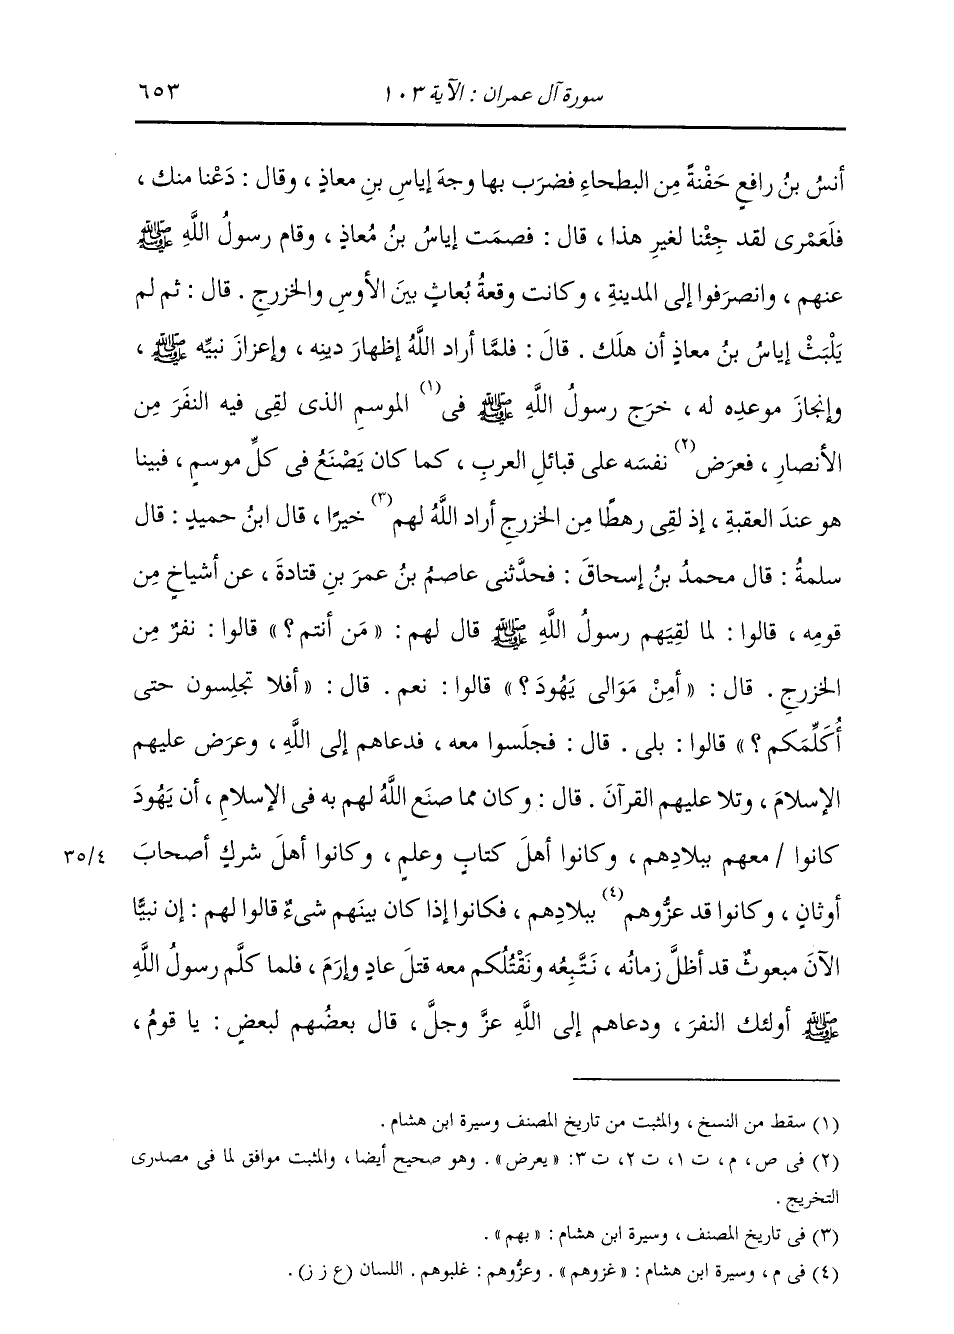 سورة آل عمران : الآية ١٠٣
٦٥٣
أنسُ بنُ رافعٍ حَفْنةً مِن البطحاءِ فضرَب بها وجهَ إياسِ بنِ معاذٍ ، وقال : دَعْنا منك ،
فلَعَمْرى لقد جِئْنا لغيرِ هذا ، قال : فصمَت إياسُ بنُ مُعاذٍ ، وقام رسولُ اللَّهِ ﷺ
عنهم ، وانصرَفوا إلى المدينةِ ، وكانت وقعةُ بُعاثٍ بينَ الأوسِ والخزرجِ . قال : ثم لم
يَلْبَثْ إياسُ بنُ معاذٍ أن هلَك . قالَ : فلمَّا أراد اللَّهُ إظهارَ دينِه ، وإعزازَ نبيِّه ﷺ ،
وإنجازَ موعدِه له ، خرَج رسولُ اللَّهِ ﷺ فى(١) الموسمِ الذى لقِى فيه النفَرَ مِن
الأنصارِ ، فعرَض(٢) نفسَه على قبائلِ العربِ ، كما كان يَصْنَعُ فى كلِّ موسمٍ ، فبينا
هو عندَ العقبةِ ، إذ لقِى رهطًا مِن الخزرجِ أراد اللَّهُ لهم(٣) خيرًا ، قال ابنُ حميدٍ : قال
سلمةُ : قال محمدُ بنُ إسحاقَ : فحدَّثنى عاصمُ بنُ عمرَ بنِ قتادةَ ، عن أشياخٍ مِن
قومِه ، قالوا : لما لقِيَهم رسولُ اللَّهِ ﷺ قال لهم : « مَن أنتم ؟ » قالوا : نفرٌ مِن
الخزرجِ . قال : « أمِنْ مَوَالى يَهُودَ ؟ » قالوا : نعم . قال : « أفلا تجلِسون حتى
أُكَلِّمَكم ؟ » قالوا : بلى . قال : فجلَسوا معه ، فدعاهم إلى اللَّهِ ، وعرَض عليهم
الإسلامَ ، وتلا عليهم القرآنَ . قال : وكان مما صنَع اللَّهُ لهم به فى الإسلامِ ، أن يَهُودَ
كانوا / معهم ببلادِهم ، وكانوا أهلَ كتابٍ وعلمٍ ، وكانوا أهلَ شركٍ أصحابَ
٣٥/٤
أوثانٍ ، وكانوا قد عزُّوهم(٤) ببلادِهم ، فكانوا إذا كان بينَهم شىءٌ قالوا لهم : إن نبيًّا
الآنَ مبعوثٌ قد أظلَّ زمانُه ، نَتَّبِعُه ونَقْتُلُكم معه قتلَ عادٍ وإرَمَ ، فلما كلَّم رسولُ اللَّهِ
ﷺ أولئك النفرَ ، ودعاهم إلى اللَّهِ عزَّ وجلَّ ، قال بعضُهم لبعضٍ : يا قومُ ،
(١) سقط من النسخ ، والمثبت من تاريخ المصنف وسيرة ابن هشام .
(٢) فى ص ، م ، ت ١، ت ٢، ت ٣: « يعرض » . وهو صحيح أيضا ، والمثبت موافق لما فى مصدرى
التخريج .
(٣) فى تاريخ المصنف ، وسيرة ابن هشام : « بهم » .
(٤) فى م ، وسيرة ابن هشام : « غزوهم » . وعزُّوهم : غلبوهم . اللسان (ع ز ز) .